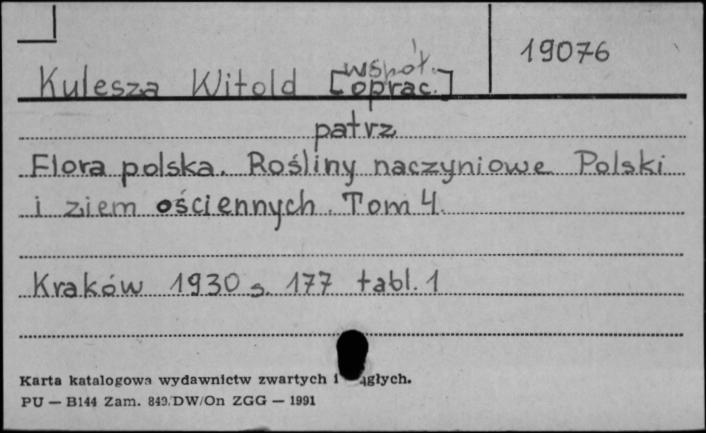 19076
współ.
Kulesza Witold [oprac.]
patrz
Flora polska. Rośliny naczyniowe Polski
i ziem ościennych. Tom 4.
Kraków 1930 s. 177 tabl. 1
Karta katalogowa wydawnictw zwartych i głych.
PU — B144 Zam. 849/DW/On ZGG — 1991